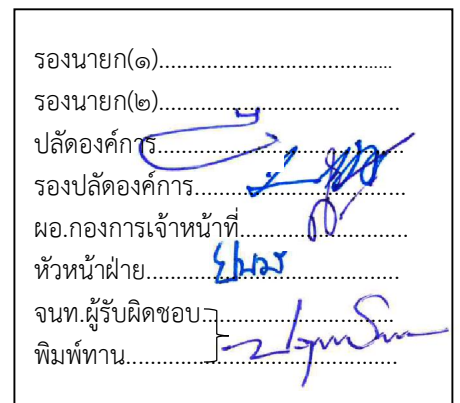 รองนายก(๑)..........................................
รองนายก(๒)..........................................
ปลัดองค์การ..........................................
รองปลัดองค์การ....................................
ผอ.กองการเจ้าหน้าที่............................
หัวหน้าฝ่าย..........................................
จนท.ผู้รับผิดชอบ..................................
พิมพ์ทาน..............................................